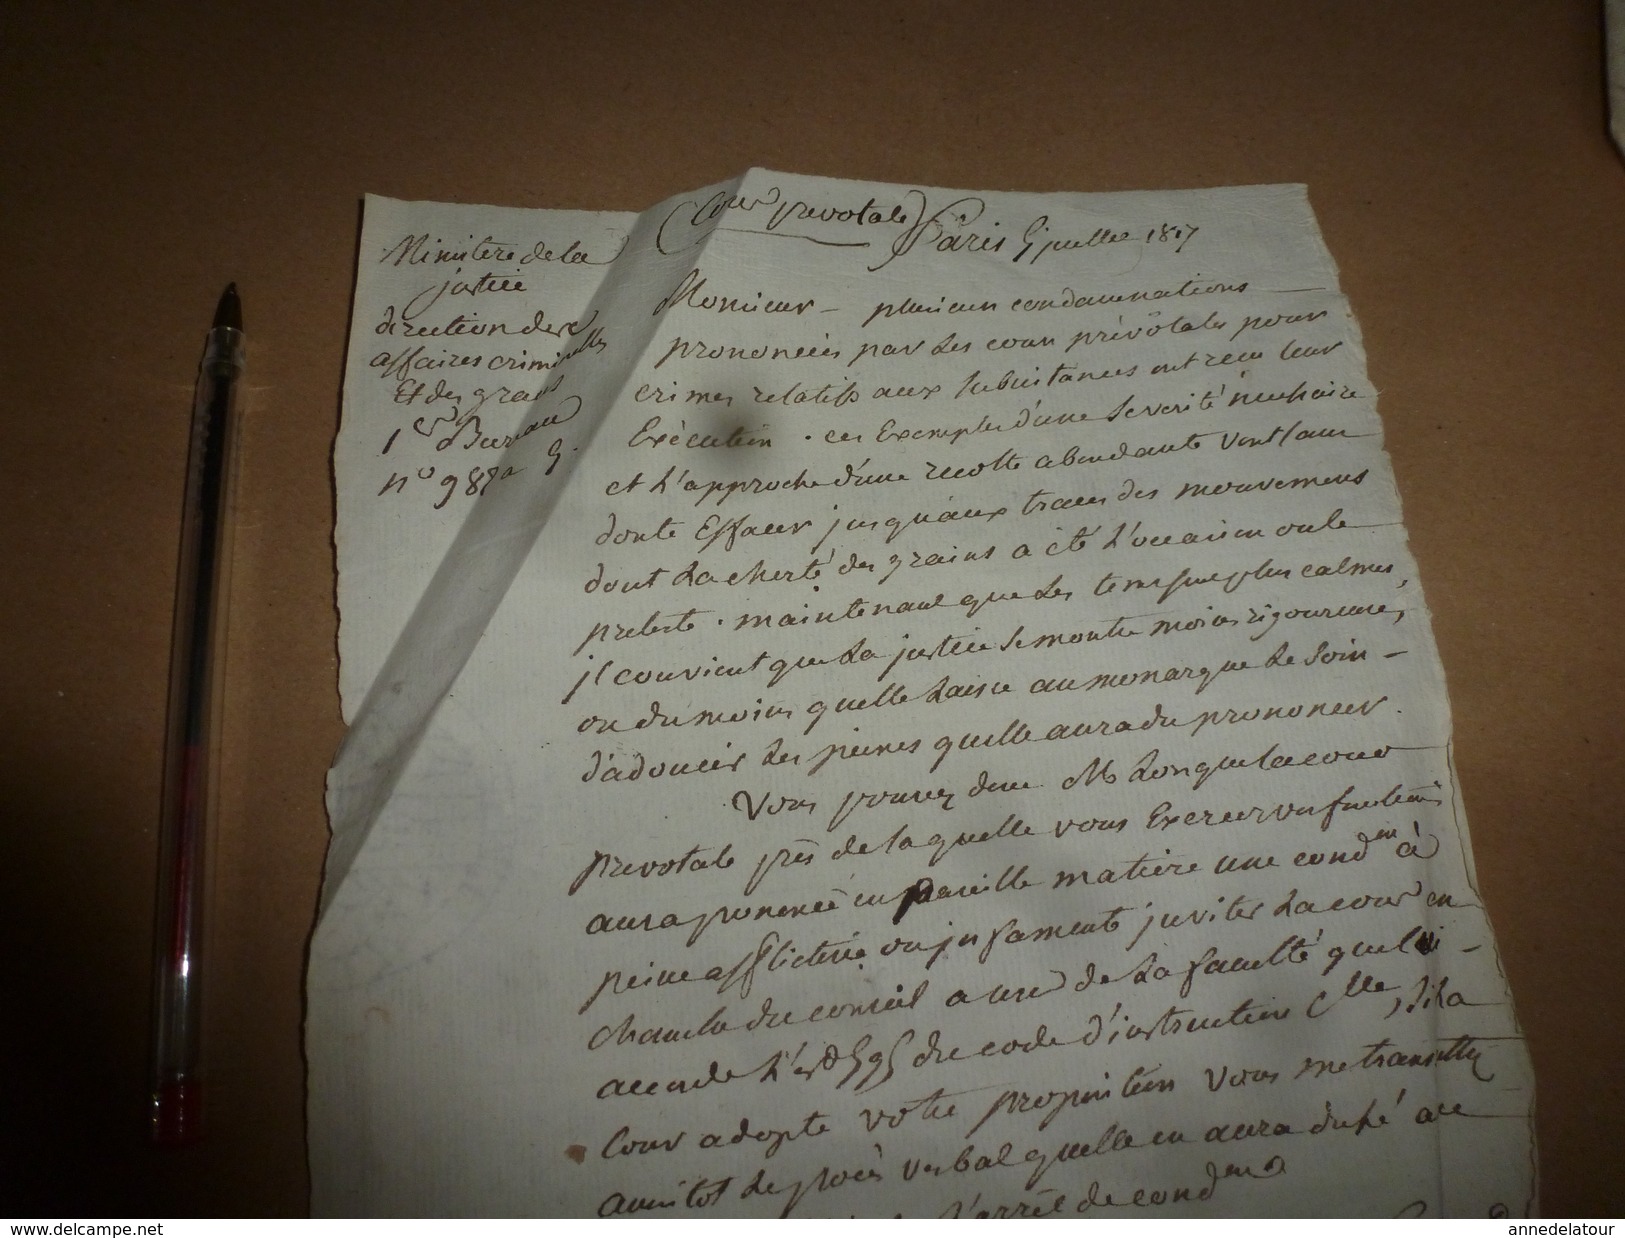 Cour prevotale
Paris 5 juillet 1817
Ministere de la
justice
direction des
affaires criminelles
Et des graces
1er Bureau
n° 987a 5.
Monsieur - plusieurs condamnations
prononcées par les cours prévôtales pour
crimes relatifs aux subsistances ont recu leur
Exécution . ces Exemples d'une severité nécessaire
et l'approche d'une recolte abondante vont sans
doute Effacer jusqu'aux traces des mouvemens
dont la cherté des grains a été l'occasion ou le
pretexte . maintenant que les tems sont plus calmes,
il convient que la justice se montre moins rigoureuse,
ou du moins quelle laisse au monarque le soin -
d'adoucir les peines quelle aura du prononcer .
Vous pouvez donc M lorsque la cour
prevotale près de laquelle vous Exercer vos fonctions
aura prononcé en pareille matiere une condon à
peine afflictive ou infamante inviter la cour en
chambre du conseil a user de la faculté que lui -
accorde l'art 595 du code d'instruction Clle, si la
Cour adopte votre proposition Vous me transmettrez
aussitot le procès verbal quelle en aura dressé avec
l'arrêt de condon
www.delcampe.net
annedelatour